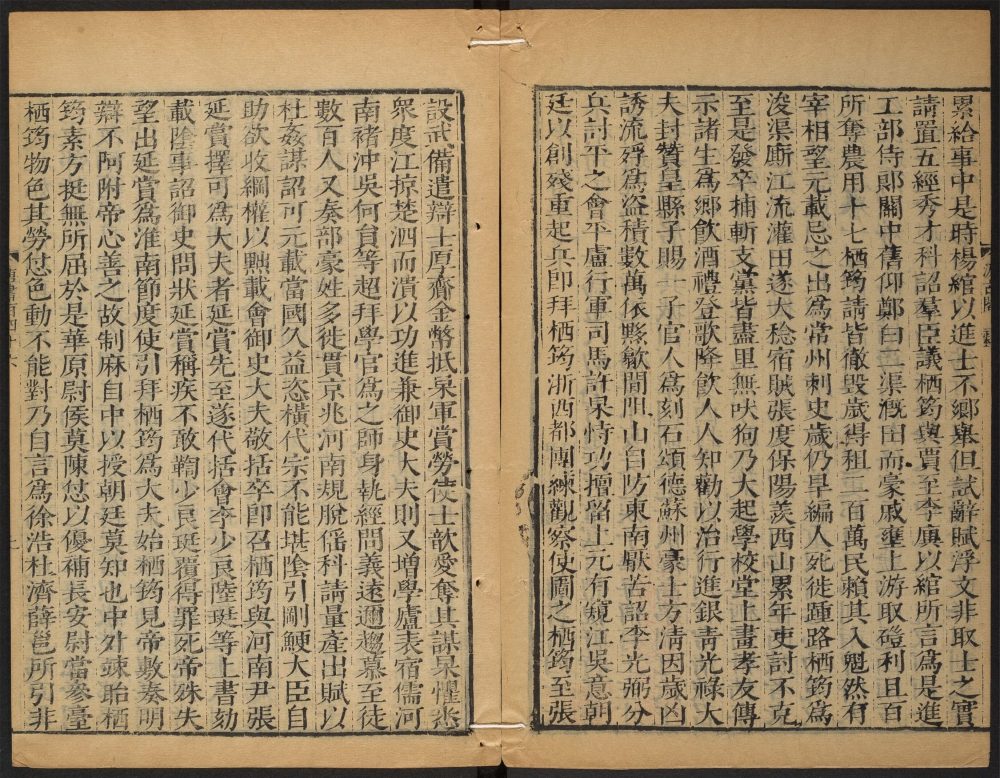 累給事中是時楊綰以進士不鄉舉但試辭賦浮文非取士之實
請置五經秀才科詔羣臣議栖筠與賈至李廙以綰所言爲是進
工部侍郎關中舊仰鄭白二渠溉田而豪戚壅上游取磑利且百
所奪農用十七栖筠請皆徹毀歲得租二百萬民賴其入魁然有
宰相望元載忌之出爲常州刺史歲仍旱編人死徙踵路栖筠爲
浚渠廝江流灌田遂大稔宿賊張度保陽羨西山累年吏討不克
至是發卒捕斬支黨皆盡里無吠狗乃大起學校堂上畫孝友傳
示諸生爲鄉飲酒禮登歌降飲人人知勸以治行進銀青光祿大
夫封贊皇縣子賜一子官人爲刻石頌德蘇州豪士方清因歲凶
誘流殍爲盜積數萬依黟歙間阻山自防東南厭苦詔李光弼分
兵討平之會平盧行軍司馬許杲恃功擅留上元有窺江吳意朝
廷以創殘重起兵卽拜栖筠浙西都團練觀察使圖之栖筠至張
設武備遣辯士厚齎金幣抵杲軍賞勞使士歆愛奪其謀杲懼悉
衆度江掠楚泗而潰以功進兼御史大夫則又增學廬表宿儒河
南褚沖吳何員等超拜學官爲之師身執經問義遠邇趨慕至徒
數百人又奏部豪姓多徙貫京兆河南規脫徭科請量產出賦以
杜姦謀詔可元載當國久益恣橫代宗不能堪陰引剛鯁大臣自
助欲收綱權以黜載會御史大夫敬括卒卽召栖筠與河南尹張
延賞擇可爲大夫者延賞先至遂代括會李少良陸珽等上書劾
載陰事詔御史問狀延賞稱疾不敢鞫少良珽覆得罪死帝殊失
望出延賞爲淮南節度使引拜栖筠爲大夫始栖筠見帝敷奏明
辯不阿附帝心善之故制麻自中以授朝廷莫知也中外竦眙栖
筠素方挺無所屈於是華原尉侯莫陳怤以優補長安尉當參臺
栖筠物色其勞怤色動不能對乃自言爲徐浩杜濟薛邕所引非